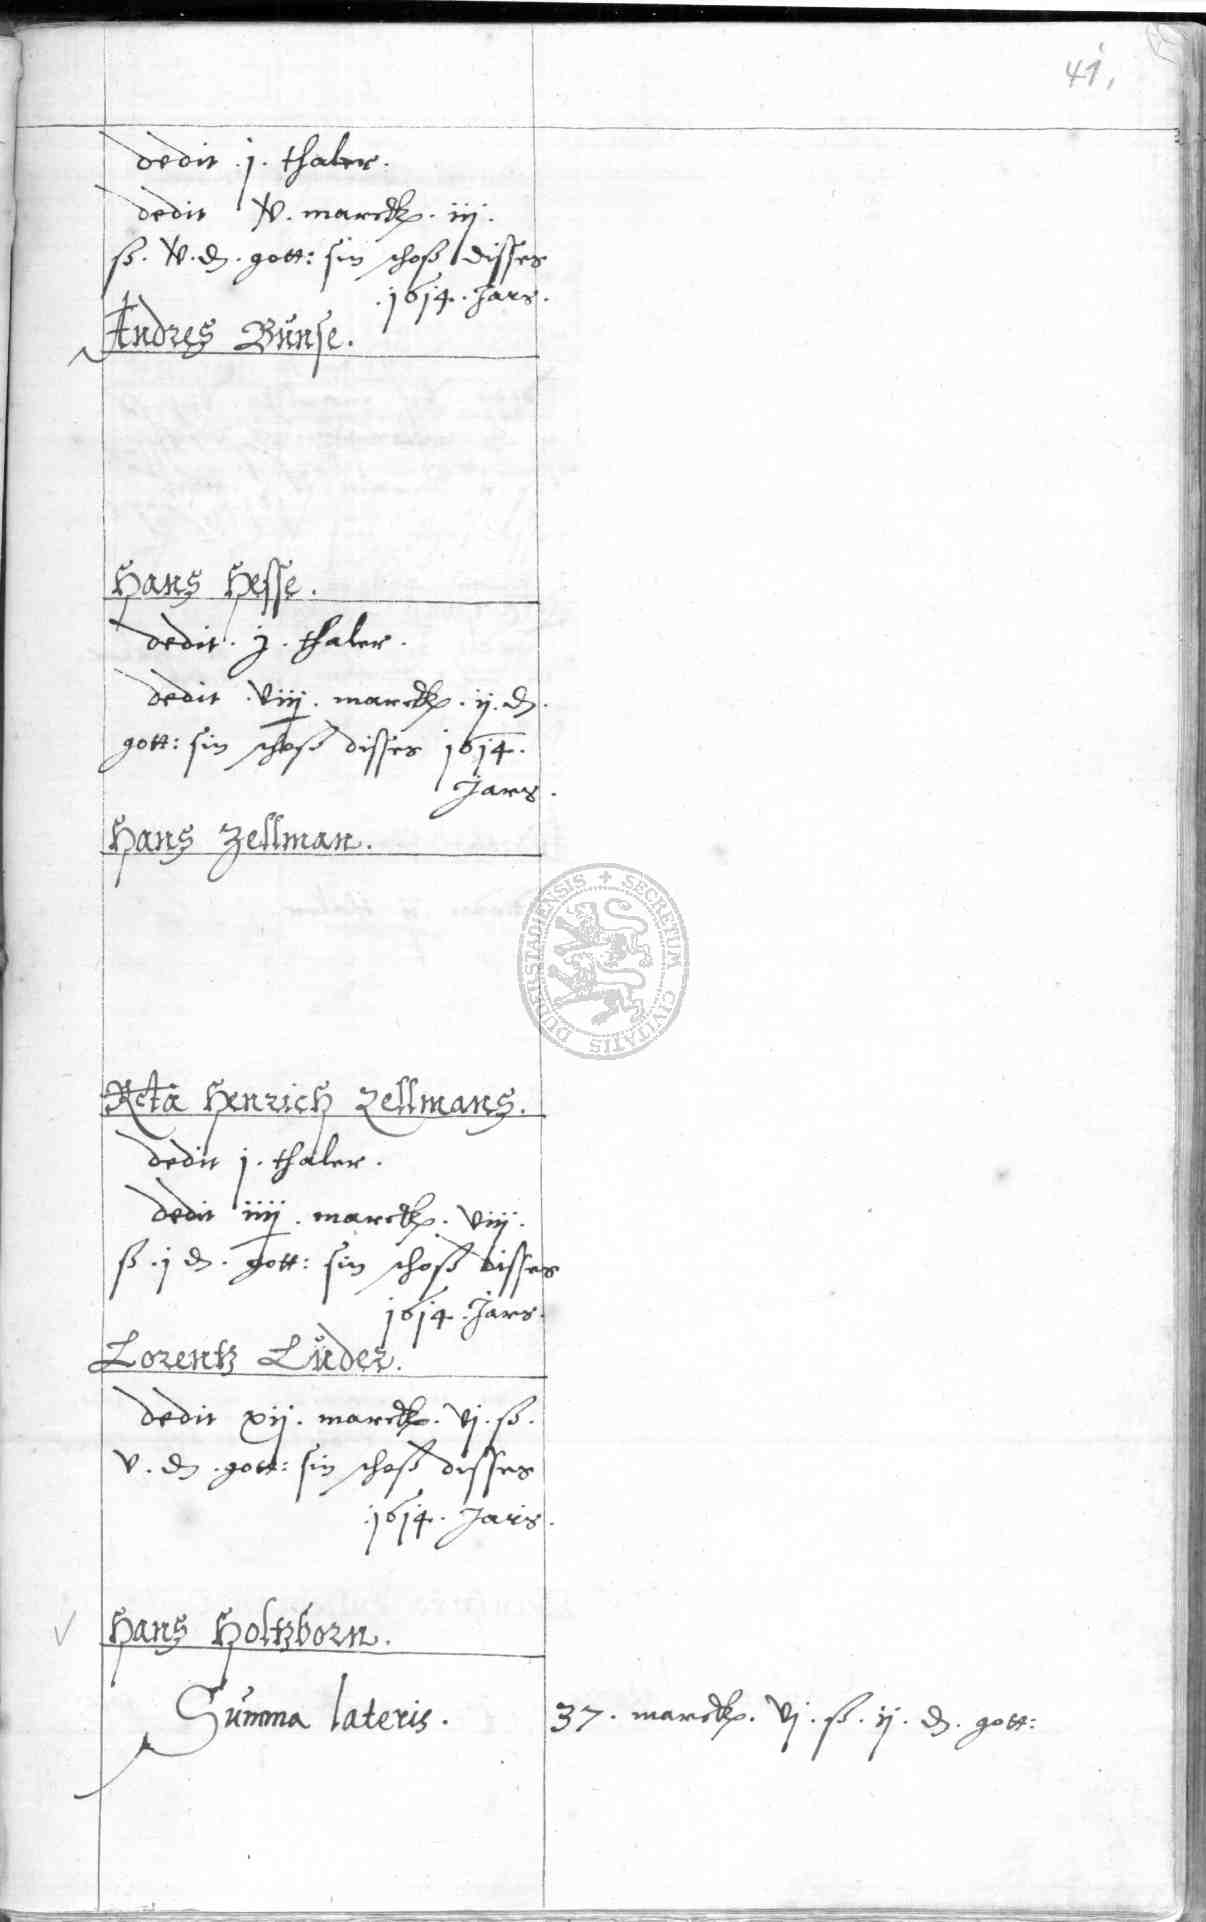 41.
dedit .j. thaler.
dedit xv. marck. iij.
ß. xv. d. gott: sin schoß disses
.1614. Jars.
Andres Bunse.
Hans Hesse.
dedit . j . thaler.
dedit . viij . marck . ij . d .
gott: sin schoß disses 1614.
Jars.
Hans Zellman.
DUDERSTADIENSIS + SECRETUM CIVITATIS
Rcta Henrich Zellmans.
dedit j . thaler .
dedit iiij . marck . viij .
ß . j d . gott: sin schoß disses
1614 . Jars.
Lorentz Lüder.
dedit xij . marck . vj . ß .
v . d . gott: sin schoß disses
.1614. Jars.
Hans Holtzborn.
Summa lateris .  37 . marck . vj . ß . ij . d . gott: